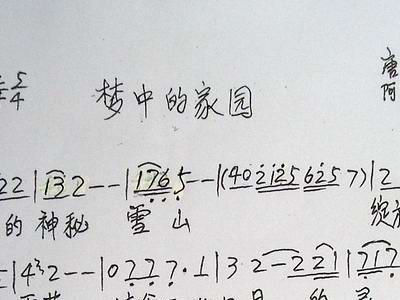 5/4 梦中的家园 唐
阿
22 | 132 - - | 1765 - - | (402125625 7) | 2
的 神秘 雪 山 绽
| 4³2 - - | 0 7 7 7 · 1 | 3 2 - 2 2 1 | 7 1 7
的